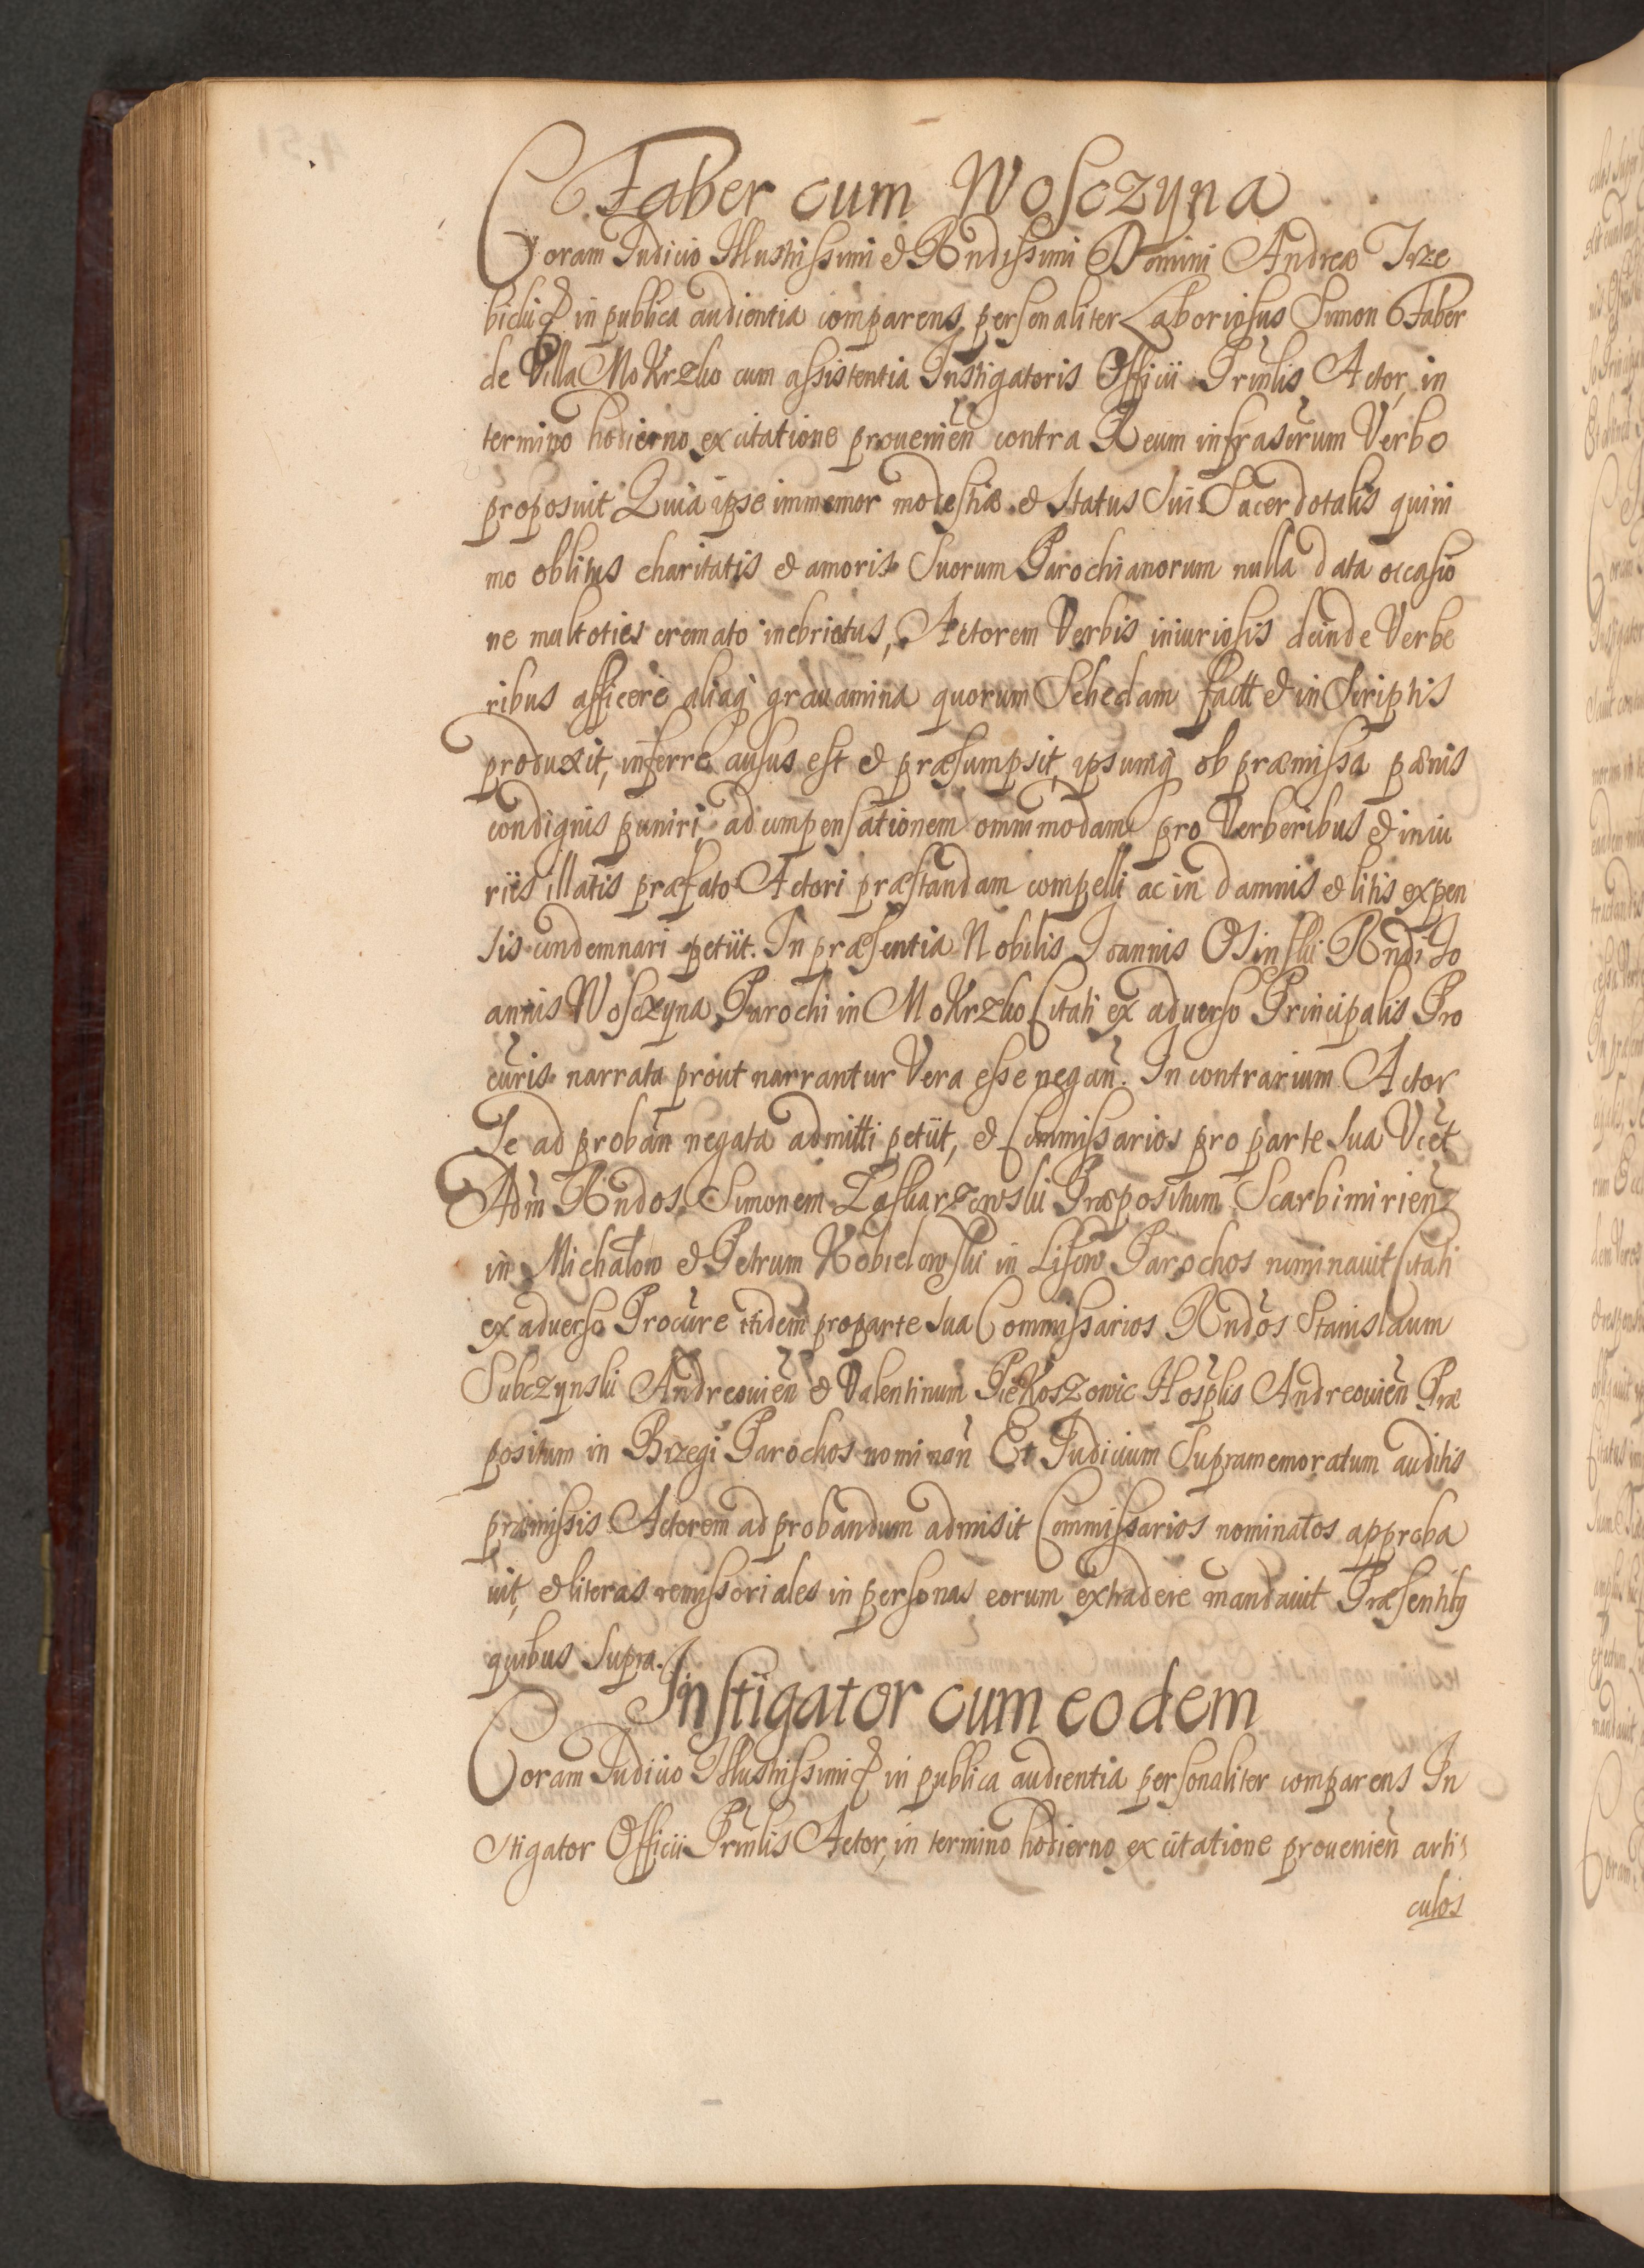 Faber cum Wosczyna
Coram Judicio Illustrissimi & Rndissimi Domini Andreæ Trze
bicki & in publica audientia comparens personaliter Laboriosus Simon Faber
de Villa Mokrzko cum assistentia Instigatoris Officii Prnlis Actor, in
termino hodierno ex citatione prouenien contra Reum infrascrum Verbo
proposuit Quia ipse immemor modestiæ & status sui Sacerdotalis quini
mo oblitus charitatis & amoris suorum Parochianorum nulla data occasio
ne multoties cremato inebriatus, Actorem Verbis iniuriosis deinde Verbe
ribus afficere aliaq grauamina quorum Schedam factt & in Scriptis
produxit, inferre ausus est & præsumpsit, ipsumq ob præmissa pænis
condignis puniri, ad compensationem omnimodam pro Verberibus & iniu
riis illatis præfato Actori præstandam compelli ac in damnis & litis expen
sis condemnari petiit. In præsentia Nobilis Joannis Osinski Rndi Jo
annis Wosczyna Parochi in Mokrzko Citati ex aduerso Principalis Pro
curis narrata prout narrantur Vera esse negan. In contrarium Actor
Se ad proban negata admitti petiit, & Commissarios pro parte sua Vcet
Adm Rndos Simonem Zaskarzewski Præpositum Scarbimirien
in Michałow & Petrum Kobielowski in Lisow Parochos nominauit Citati
ex aduerso Procure itidem pro parte sua Commissarios Rndos Stanislaum
Subczynski Andreouien & Valentinum Piekoszowic Hosplis Andreouien Præ
positum in Brzegi Parochos nominan Et Judicium Supramemoratum auditis
præmissis Actorem ad probandum admisit Commissarios nominatos approba
uit, & literas remissoriales in personas eorum extradere mandauit Præsentibq
quibus supra.
Instigator cum eodem
Coram Judicio Illustrissimi & in publica audientia personaliter comparens In
stigator Officii Prnlis Actor, in termino hodierno ex citatione prouenien arti
culos